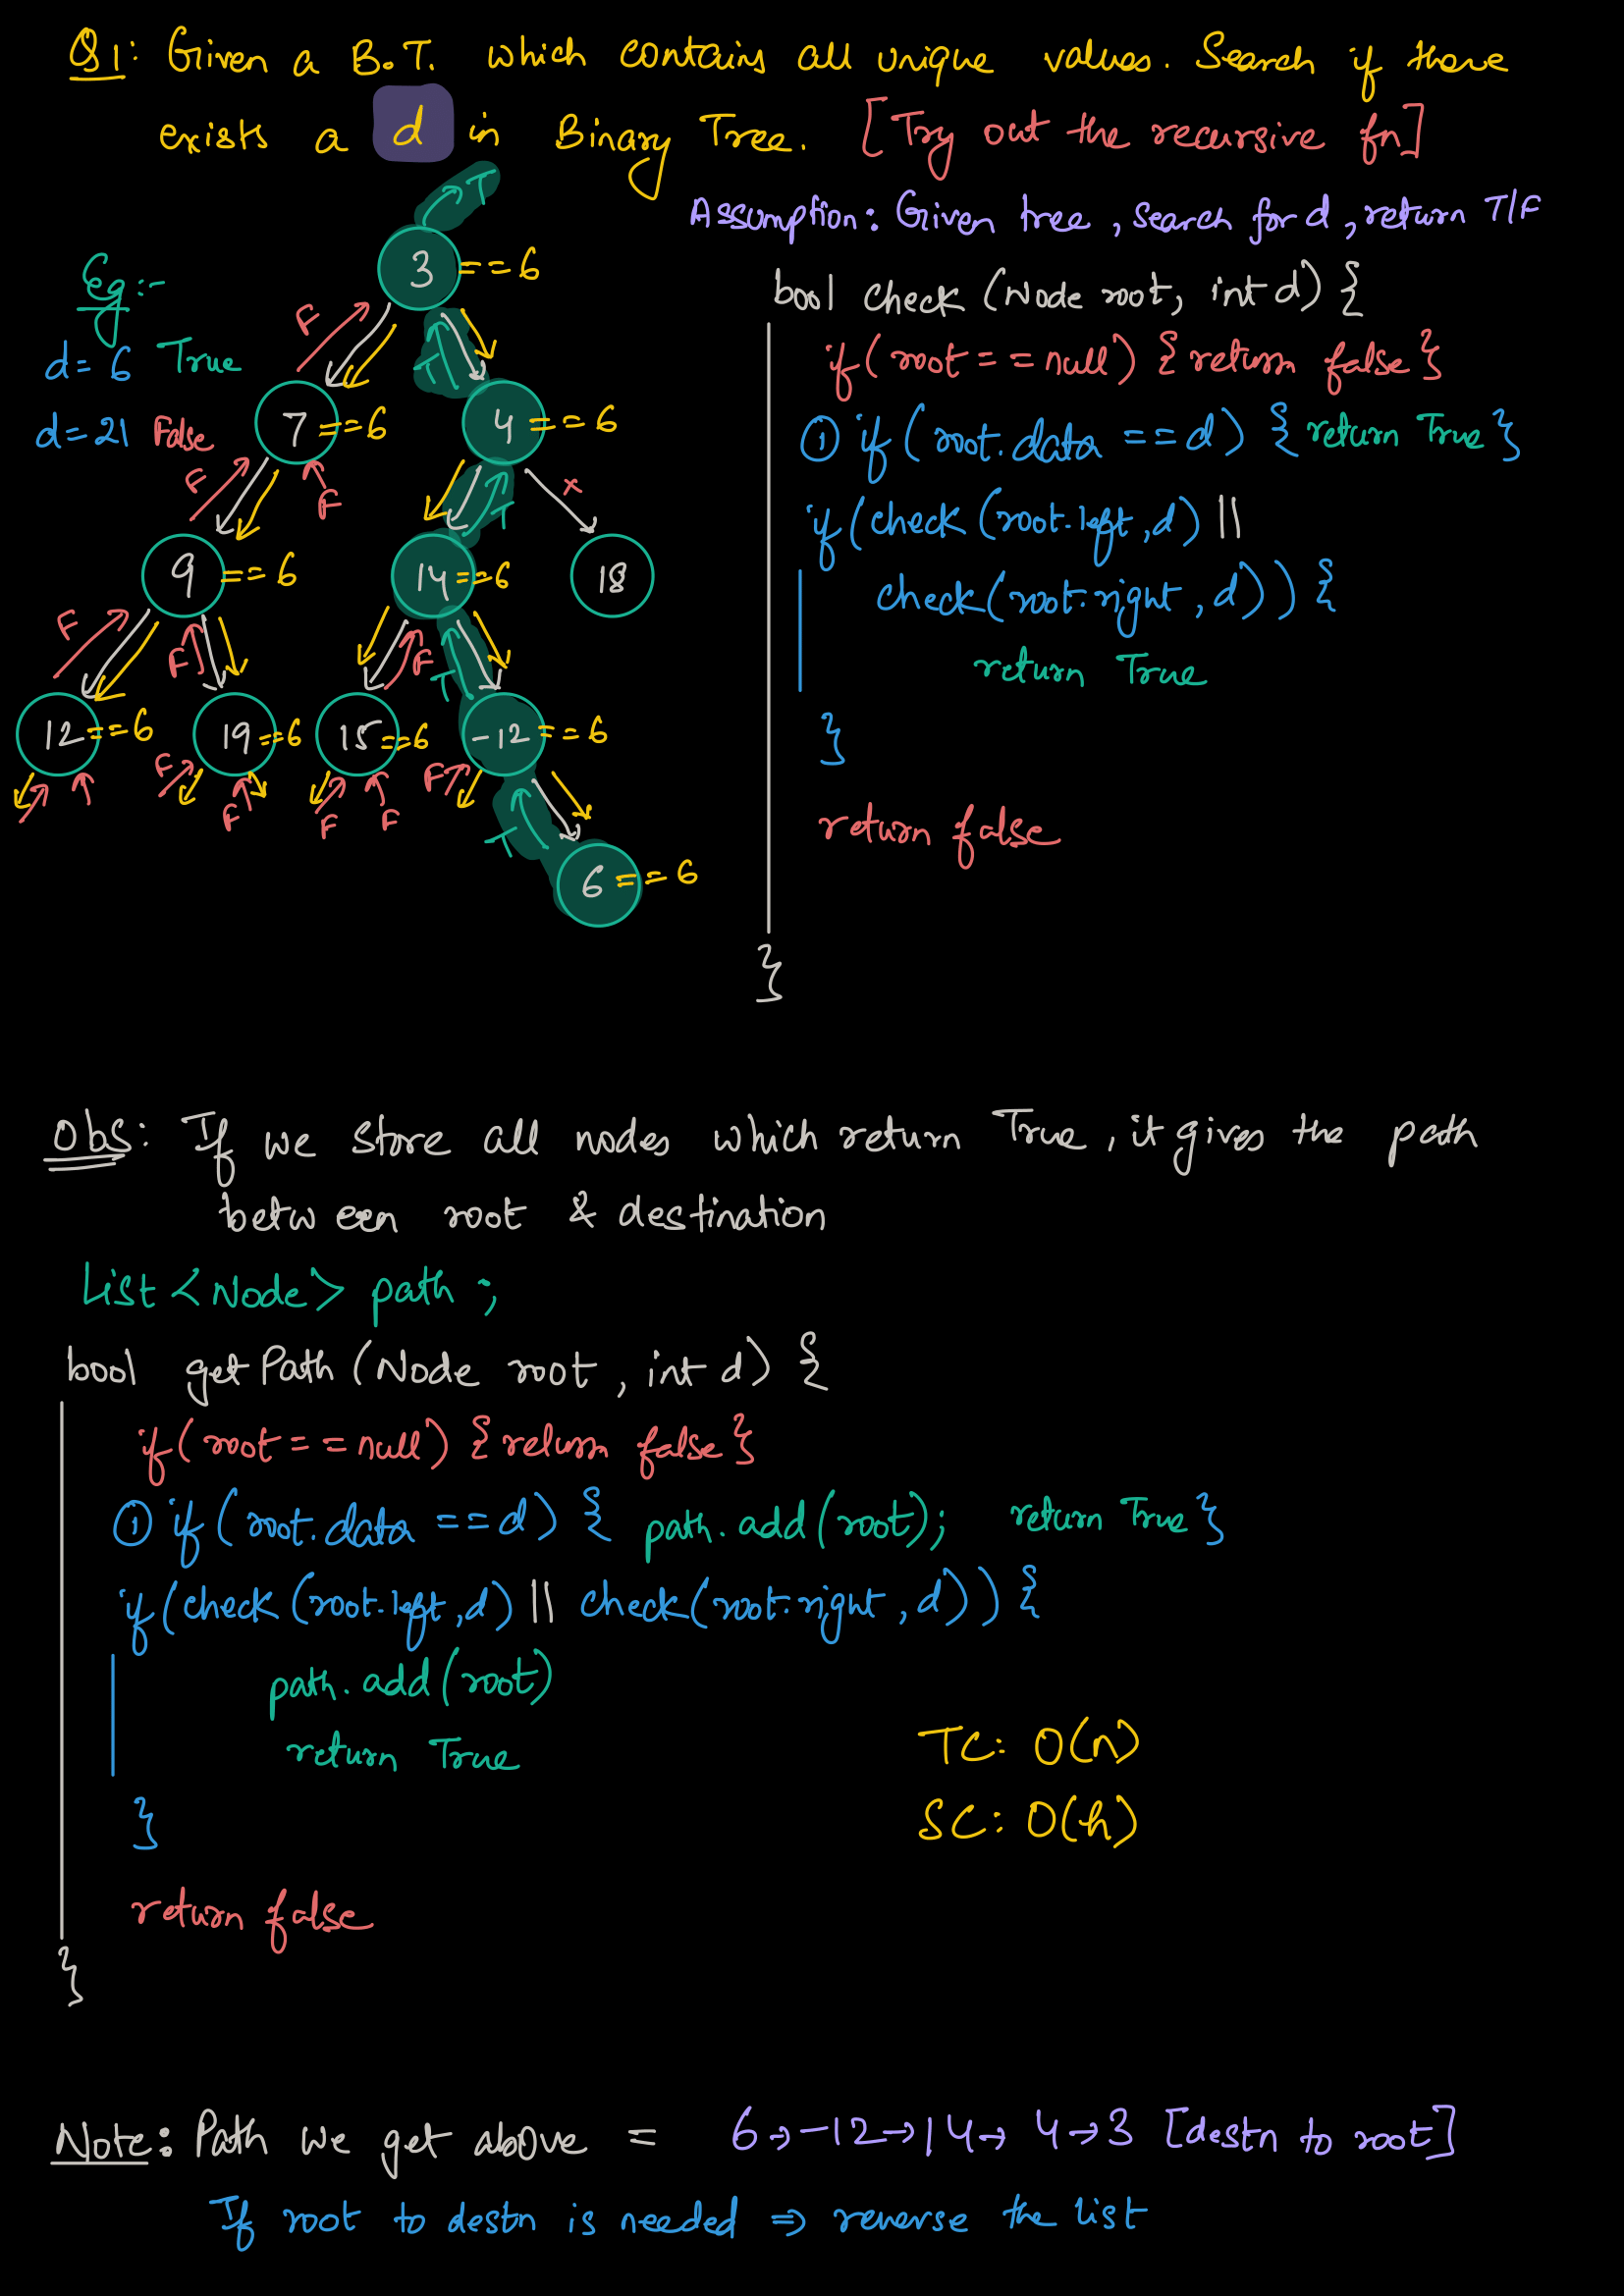 Q1: Given a B.T. which contains all unique values. Search if there
exists a d in Binary Tree. [Try out the recursive fn]
Assumption: Given tree, search for d, return T/F
Eg:-
d= 6 True
d=21 False
T
3 ==6
F T
7 ==6 4 ==6
F F T x
9 ==6 14 ==6 18
F F F T
12 ==6 19 ==6 15 ==6 -12 ==6
F F F F F T
6 ==6
bool check (Node root, int d) {
if (root == null) { return false }
① if (root.data == d) { return True }
if (check (root.left, d) ||
check(root.right, d)) {
return True
}
return false
}
Obs: If we store all nodes which return True, it gives the path
between root & destination
List <Node> path ;
bool getPath (Node root, int d) {
if (root == null) { return false }
① if (root.data == d) { path.add(root); return True }
if (check (root.left, d) || check(root.right, d)) {
path.add(root)
return True
}
return false
}
TC: O(n)
SC: O(h)
Note: Path we get above = 6→-12→14→ 4→3 [destn to root]
If root to destn is needed ⇒ reverse the list